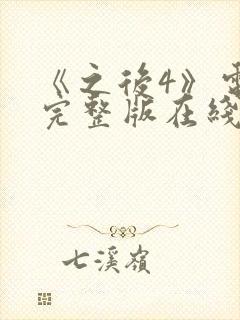 《之後4》
完整版在綫
七溪嶺